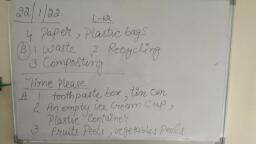 22/1/22
L-42
4 Paper, Plastic bags
B 1 Waste 2 Recycling
3 Composting
Time Please
A 1 toothpaste box, tin can
2. An empty ice Cream Cup,
Plastic Container
3 Fruits Peels, vegetables Peels